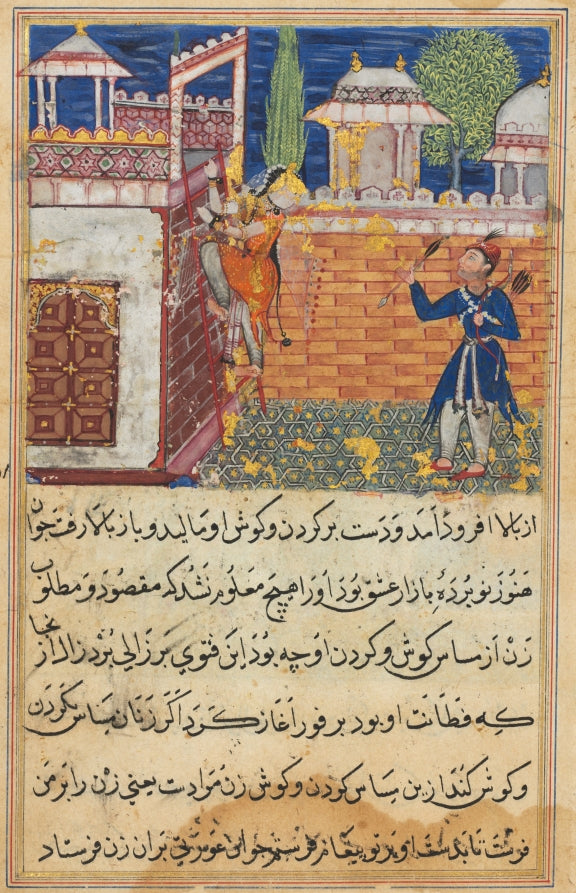 از بالا فرود آمد و دست بر کردن و کوش او مالید و باز بالا رفت جوان
هنوز نو بردهٔ بازار عشق بود او را هیچ معلوم نشد که مقصود و مطلوب
زن از مساس کوش و کردن او چه بود این فتوی بر زالی برد زال از آنجا
که فطانت او بود بر فور آغاز کرد اکر زنان مساس بکردن
و کوش کنند از بن مساس کردن و کوش زن مرادست یعنی زن را بر من
فرست تا بدست او بر تو فرستم جوان عورتی بران زن فرستاد